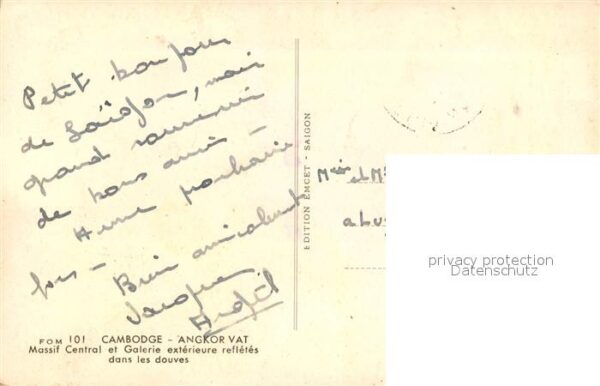 Petit bonjour
de Saïgon, mais
grand souvenir
de bons amis
A une prochaine
fois -
Bien amicalement
Jacques
EDITION EMCET - SAIGON
Mr et M
a Lu
privacy protection
Datenschutz
FOM 101 CAMBODGE - ANGKOR VAT
Massif Central et Galerie extérieure reflétés
dans les douves